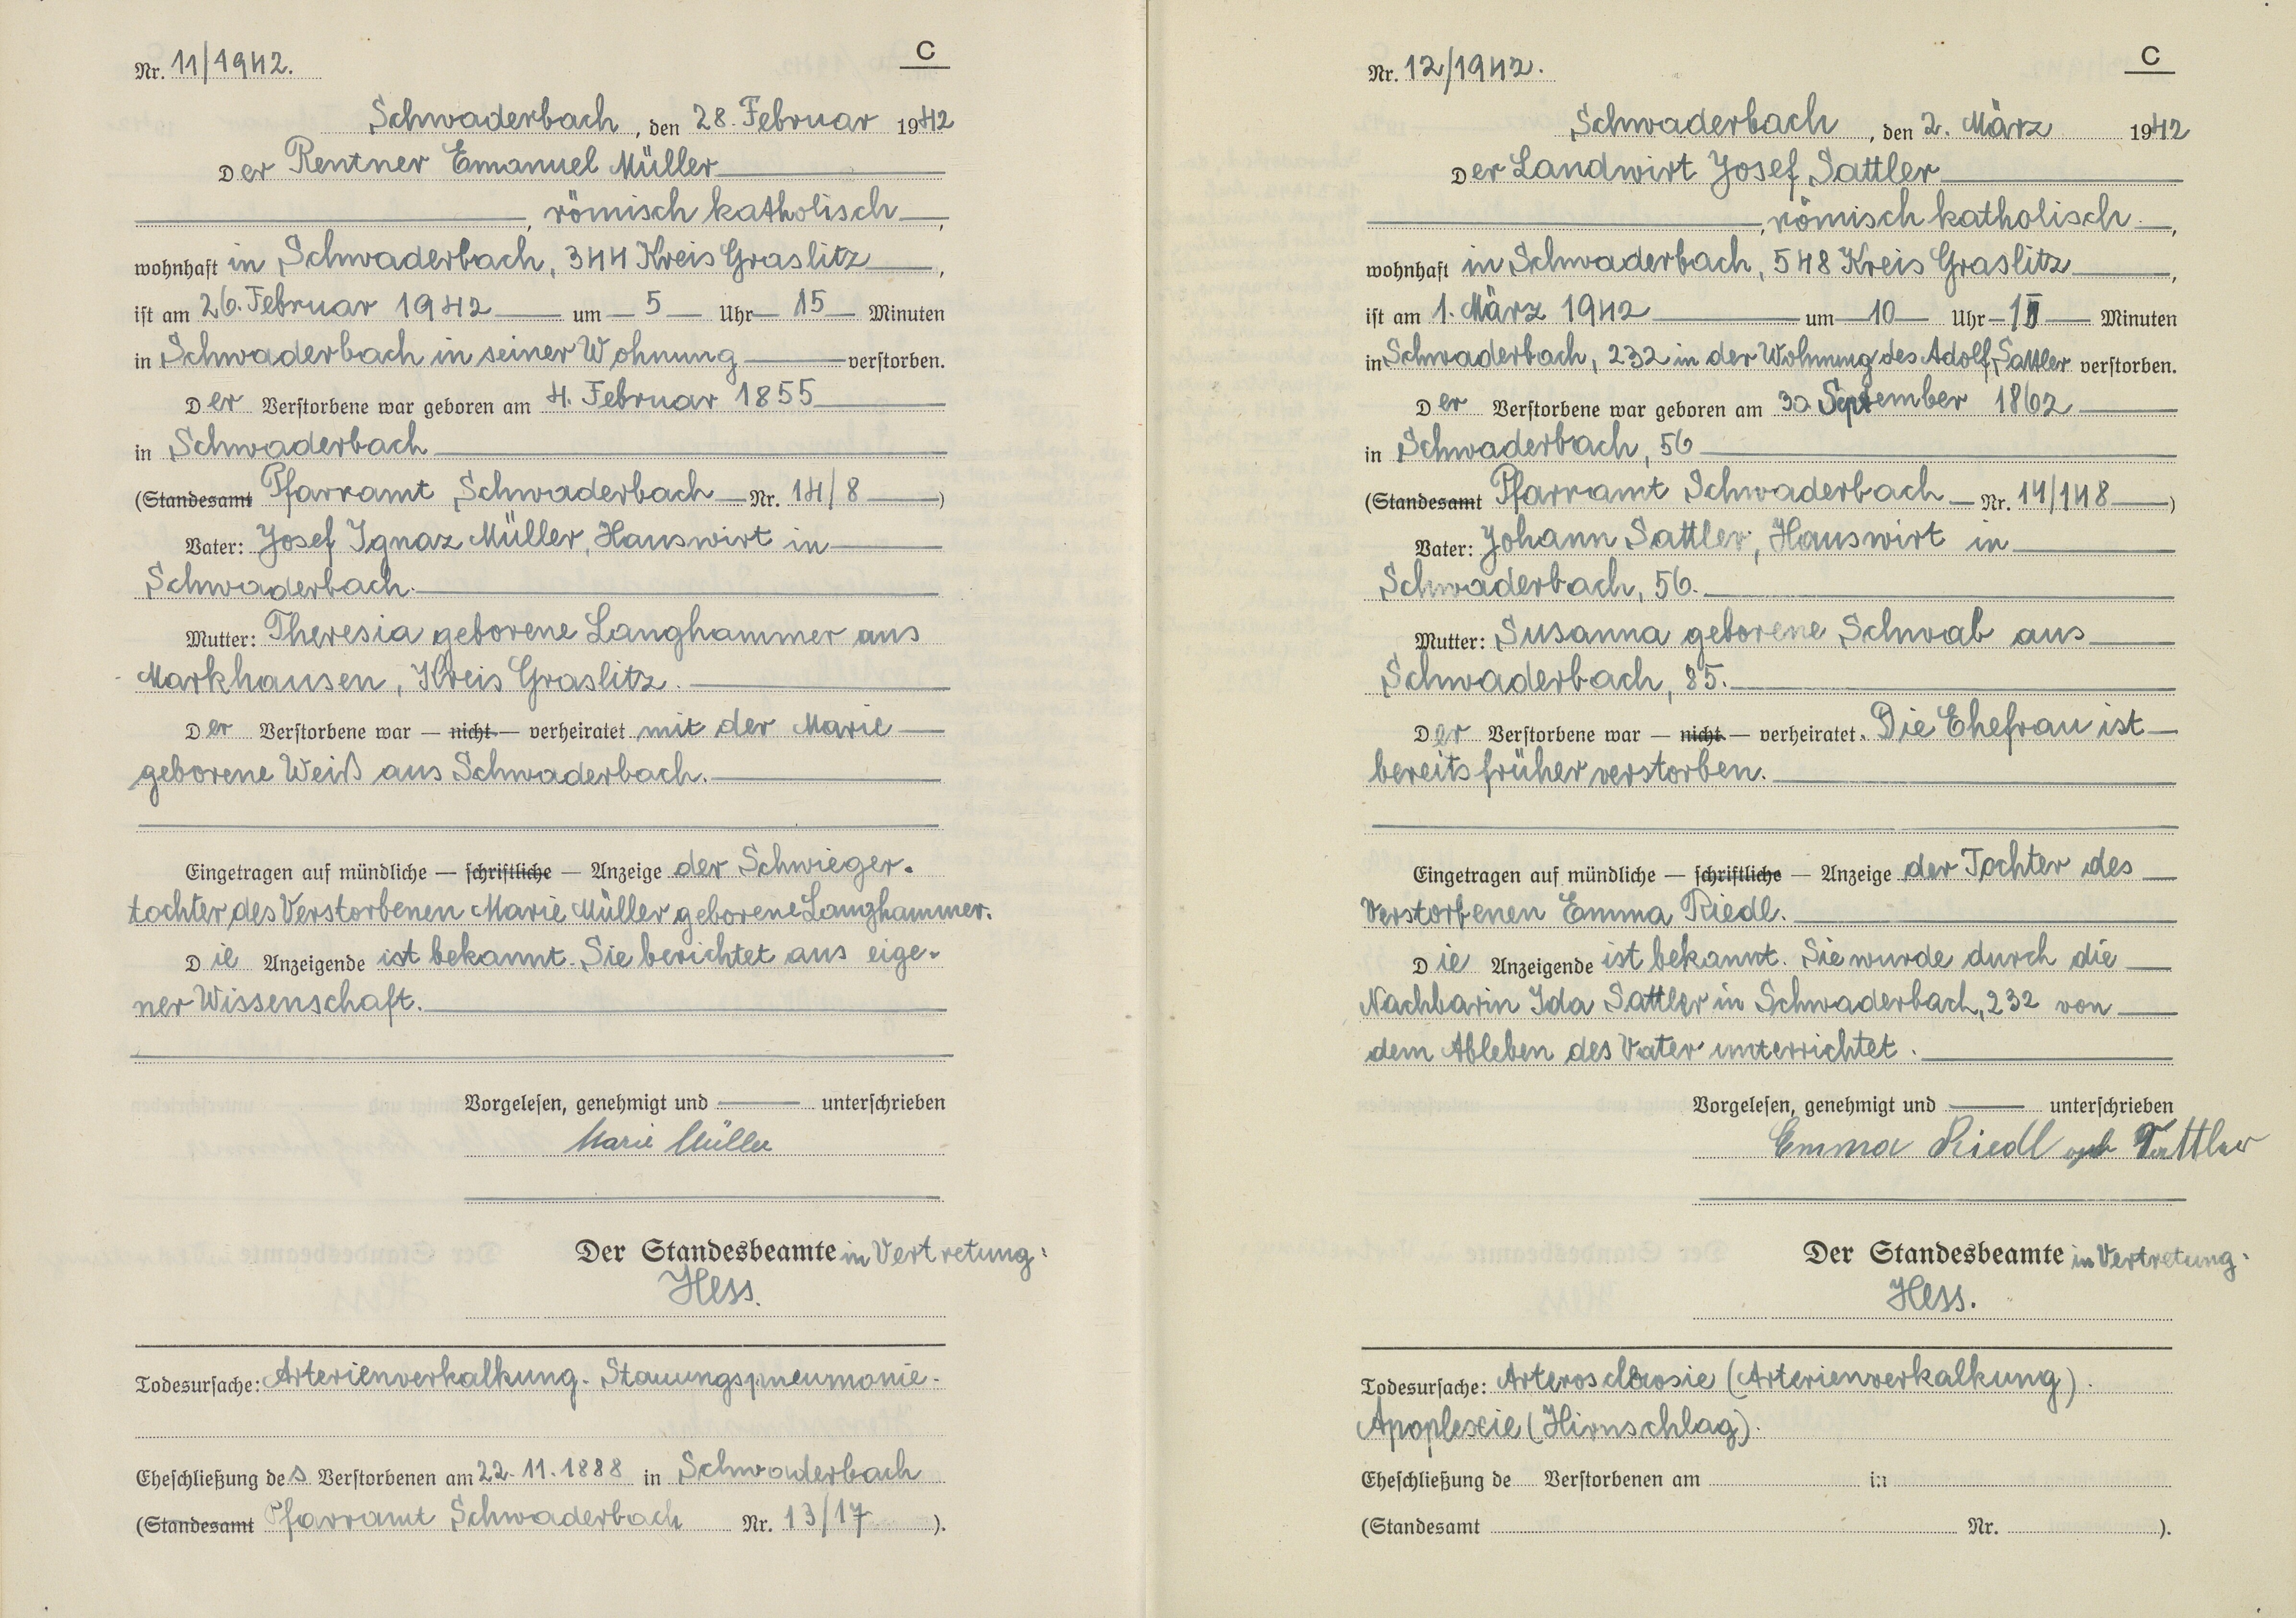 C
Nr. 11/1942.
Schwaderbach, den 28. Februar 1942
Der Rentner Emanuel Müller
, römisch katholisch,
wohnhaft in Schwaderbach, 344 Kreis Graslitz,
ist am 26. Februar 1942 um 5 Uhr 15 Minuten
in Schwaderbach in seiner Wohnung verstorben.
Der Verstorbene war geboren am 4. Februar 1855
in Schwaderbach
(Standesamt Pfarramt Schwaderbach Nr. 14/8)
Vater: Josef Ignaz Müller, Hauswirt in
Schwaderbach.
Mutter: Theresia geborene Langhammer aus
Markhausen, Kreis Graslitz.
Der Verstorbene war — nicht — verheiratet mit der Marie
geborene Weiß aus Schwaderbach.
Eingetragen auf mündliche — schriftliche — Anzeige der Schwieger-
tochter des Verstorbenen Marie Müller geborene Langhammer.
Die Anzeigende ist bekannt. Sie berichtet aus eige-
ner Wissenschaft.
Vorgelesen, genehmigt und unterschrieben
Marie Müller
Der Standesbeamte in Vertretung:
Hess.
Todesursache: Arterienverkalkung. Stauungspneumonie.
Eheschließung des Verstorbenen am 22.11.1888 in Schwaderbach
(Standesamt Pfarramt Schwaderbach Nr. 13/17).
C
Nr. 12/1942.
Schwaderbach, den 2. März 1942
Der Landwirt Josef Sattler
, römisch katholisch,
wohnhaft in Schwaderbach, 548 Kreis Graslitz,
ist am 1. März 1942 um 10 Uhr Minuten
in Schwaderbach, 232 in der Wohnung des Adolf Sattler verstorben.
Der Verstorbene war geboren am 30 September 1862
in Schwaderbach, 56
(Standesamt Pfarramt Schwaderbach Nr. 14/148)
Vater: Johann Sattler, Hauswirt in
Schwaderbach, 56.
Mutter: Susanna geborene Schwab aus
Schwaderbach, 85.
Der Verstorbene war — nicht — verheiratet. Die Ehefrau ist
bereits früher verstorben.
Eingetragen auf mündliche — schriftliche — Anzeige der Tochter des
Verstorbenen Emma Riedl.
Die Anzeigende ist bekannt. Sie wurde durch die
Nachbarin Ida Sattler in Schwaderbach, 232 von
dem Ableben des Vater unterrichtet.
Vorgelesen, genehmigt und unterschrieben
Emma Riedl geb Sattler
Der Standesbeamte in Vertretung:
Hess.
Todesursache: (Arterienverkalkung).
Apoplexie (Hirnschlag).
Eheschließung de Verstorbenen am in
(Standesamt Nr. ).